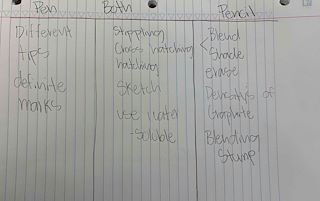 Pen
Different
tips
definite
marks
Both
Stippling
Cross hatching
hatching
Sketch
use water
-soluble
Pencil
Blend
Shade
erase
Densitys of
Graphite
Blending
Stump